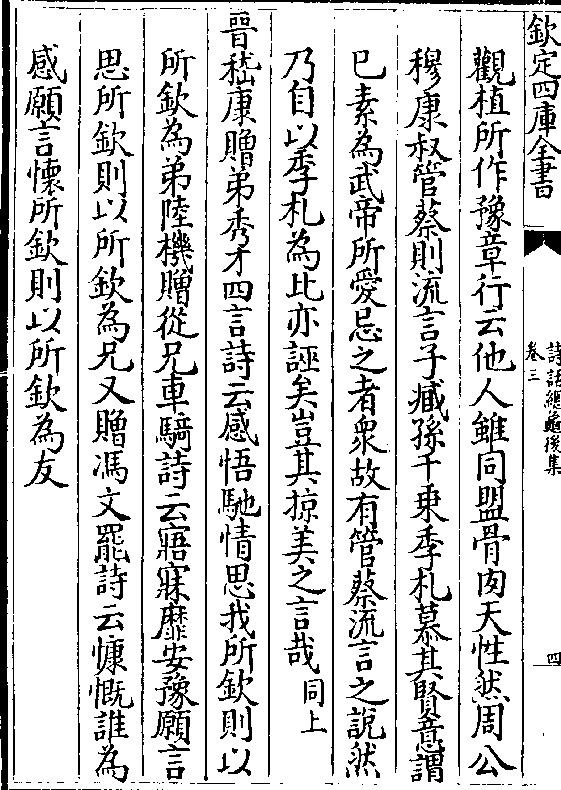 欽定四庫全書
詩話總龜後集
卷三
四
觀植所作豫章行云他人雖同盟骨肉天性然周公
穆康叔管蔡則流言子臧孫千乗季札慕其賢意謂
已素為武帝所愛忌之者衆故有管蔡流言之說然
乃自以季札為比亦誣矣豈其掠美之言哉同上
晉嵇康贈弟秀才四言詩云感悟馳情思我所欽則以
所欽為弟陸機贈從兄車騎詩云寤寐靡安豫願言
思所欽則以所欽為兄又贈馮文羆詩云慷慨誰為
感願言懷所欽則以所欽為友